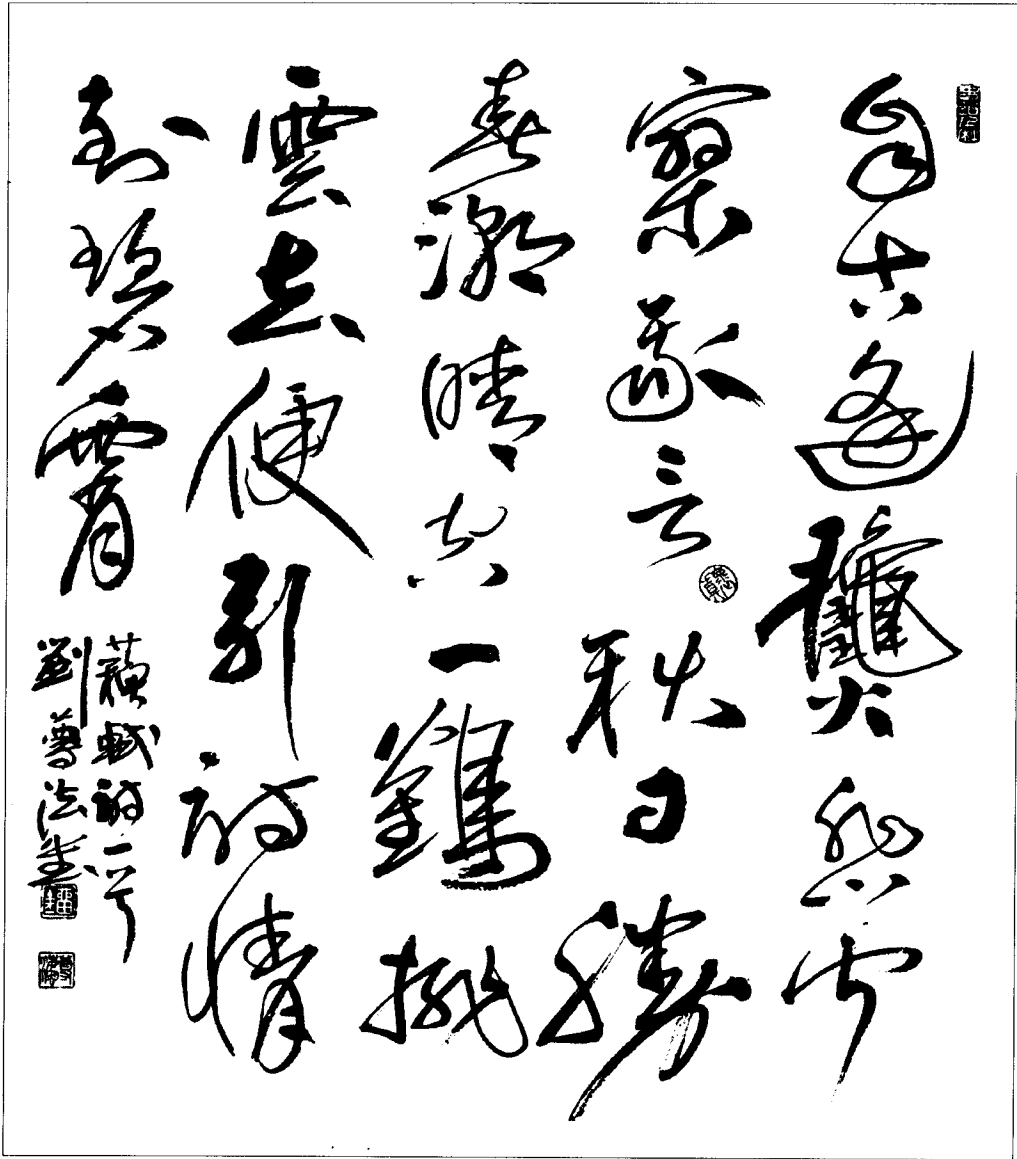 自古逢𥤛悲寂
寥我言秋日勝
春潮晴空一鶴排
雲去便引詩情
到碧霄
蘇軾詩一首
劉尊法書